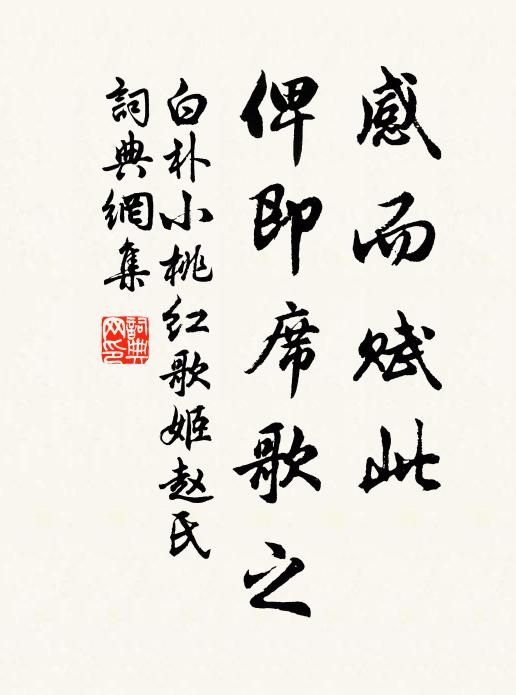 感而赋此
俾即席歌之
白朴小桃红歌姬赵氏
詞典網集
詞典网印